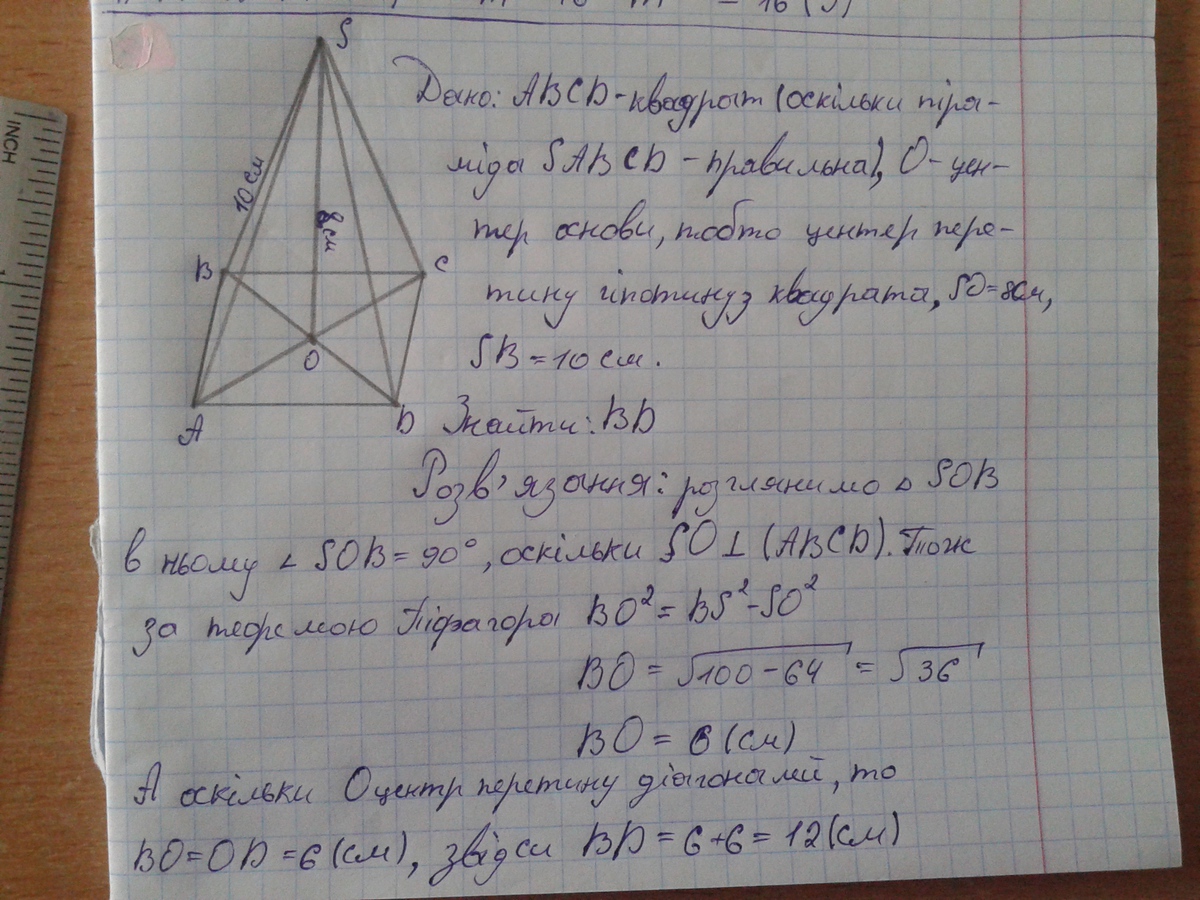 = 16 (
S
INCH
Дано: ABCD - квадрат (оскільки піра-
10 см
міда SABCD - правильна), O - цен-
8 см
тер основи, тобто центер пере-
B
C
тину гіпотинуз квадрата, SO = 8см,
O
SB = 10 см.
A
D
Знайти: BD
Розв'язання: розглянимо △ SOB
в ньому ∠ SOB = 90°, оскільки SO ⊥ (ABCD). Тож
за теоремою Піфагора BO² = BS² - SO²
BO = √100 - 64 = √36
BO = 6 (см)
А оскільки O центр перетину діагоналей, то
BO = OD = 6 (см), звідси BD = 6 + 6 = 12 (см)